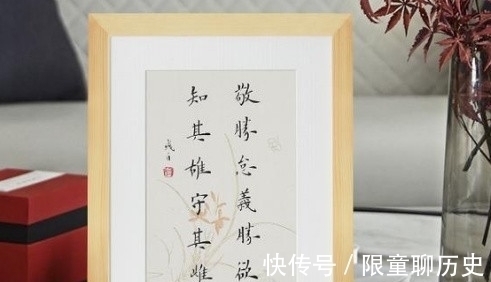 敬勝怠義勝欲
知其雄守其雌
快传号/限童聊历史